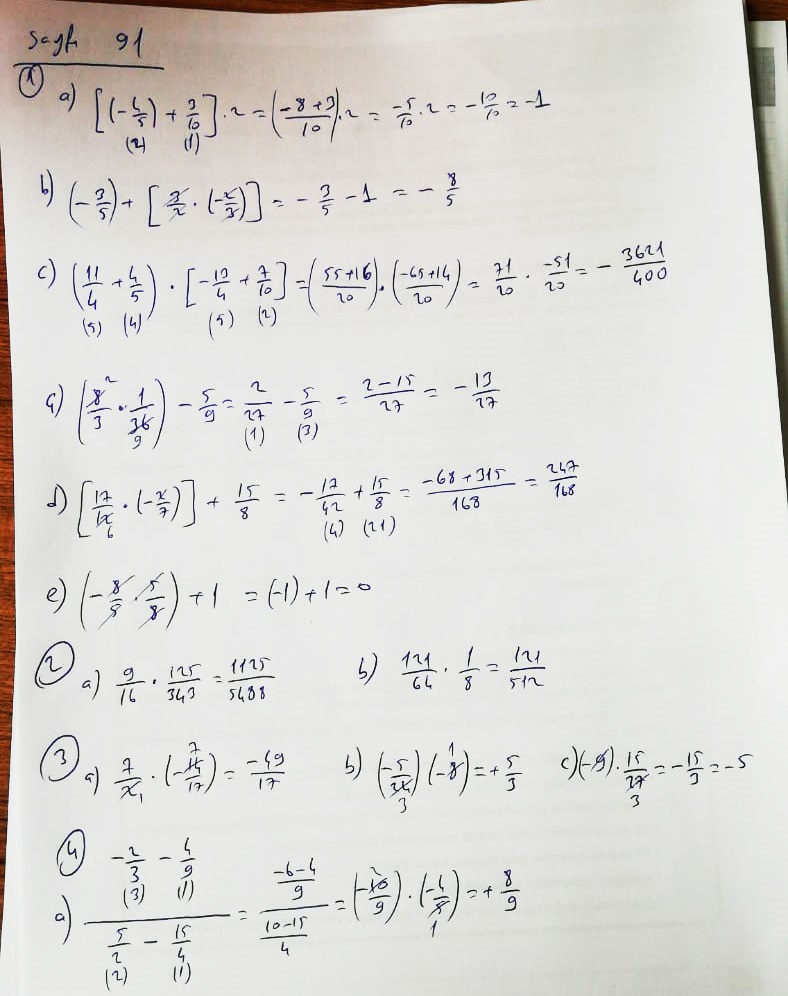 Sayfa 91
① a) [(-4/5) + 3/10] · 2 = (-8+3/10) · 2 = -5/10 · 2 = -10/10 = -1
(2) (1)
b) (-3/5) + [3/2 · (-2/3)] = -3/5 - 1 = -8/5
c) (11/4 + 4/5) · [-13/4 + 7/10] = (55+16/20) · (-65+14/20) = 71/20 · -51/20 = -3621/400
(5) (4) (5) (2)
ç) (8/3 · 1/36) - 5/9 = 2/27 - 5/9 = 2-15/27 = -13/27
2 9 (1) (3)
d) [17/12 · (-2/7)] + 15/8 = -17/42 + 15/8 = -68+315/168 = 247/168
6 (4) (21)
e) (-8/5 · 5/8) + 1 = (-1) + 1 = 0
② a) 9/16 · 125/343 = 1125/5488 b) 121/64 · 1/8 = 121/512
③ a) 7/2 · (-14/17) = -49/17 b) (-5/24) (-8) = +5/3 c) (-9) · 15/27 = -15/3 = -5
1 7 3 1 3
④ a) -2/3 - 4/9
(3) (1)
5/2 - 15/4 = -6-4/9 / 10-15/4 = (-10/9) · (-4/5) = +8/9
(2) (1) 2 1